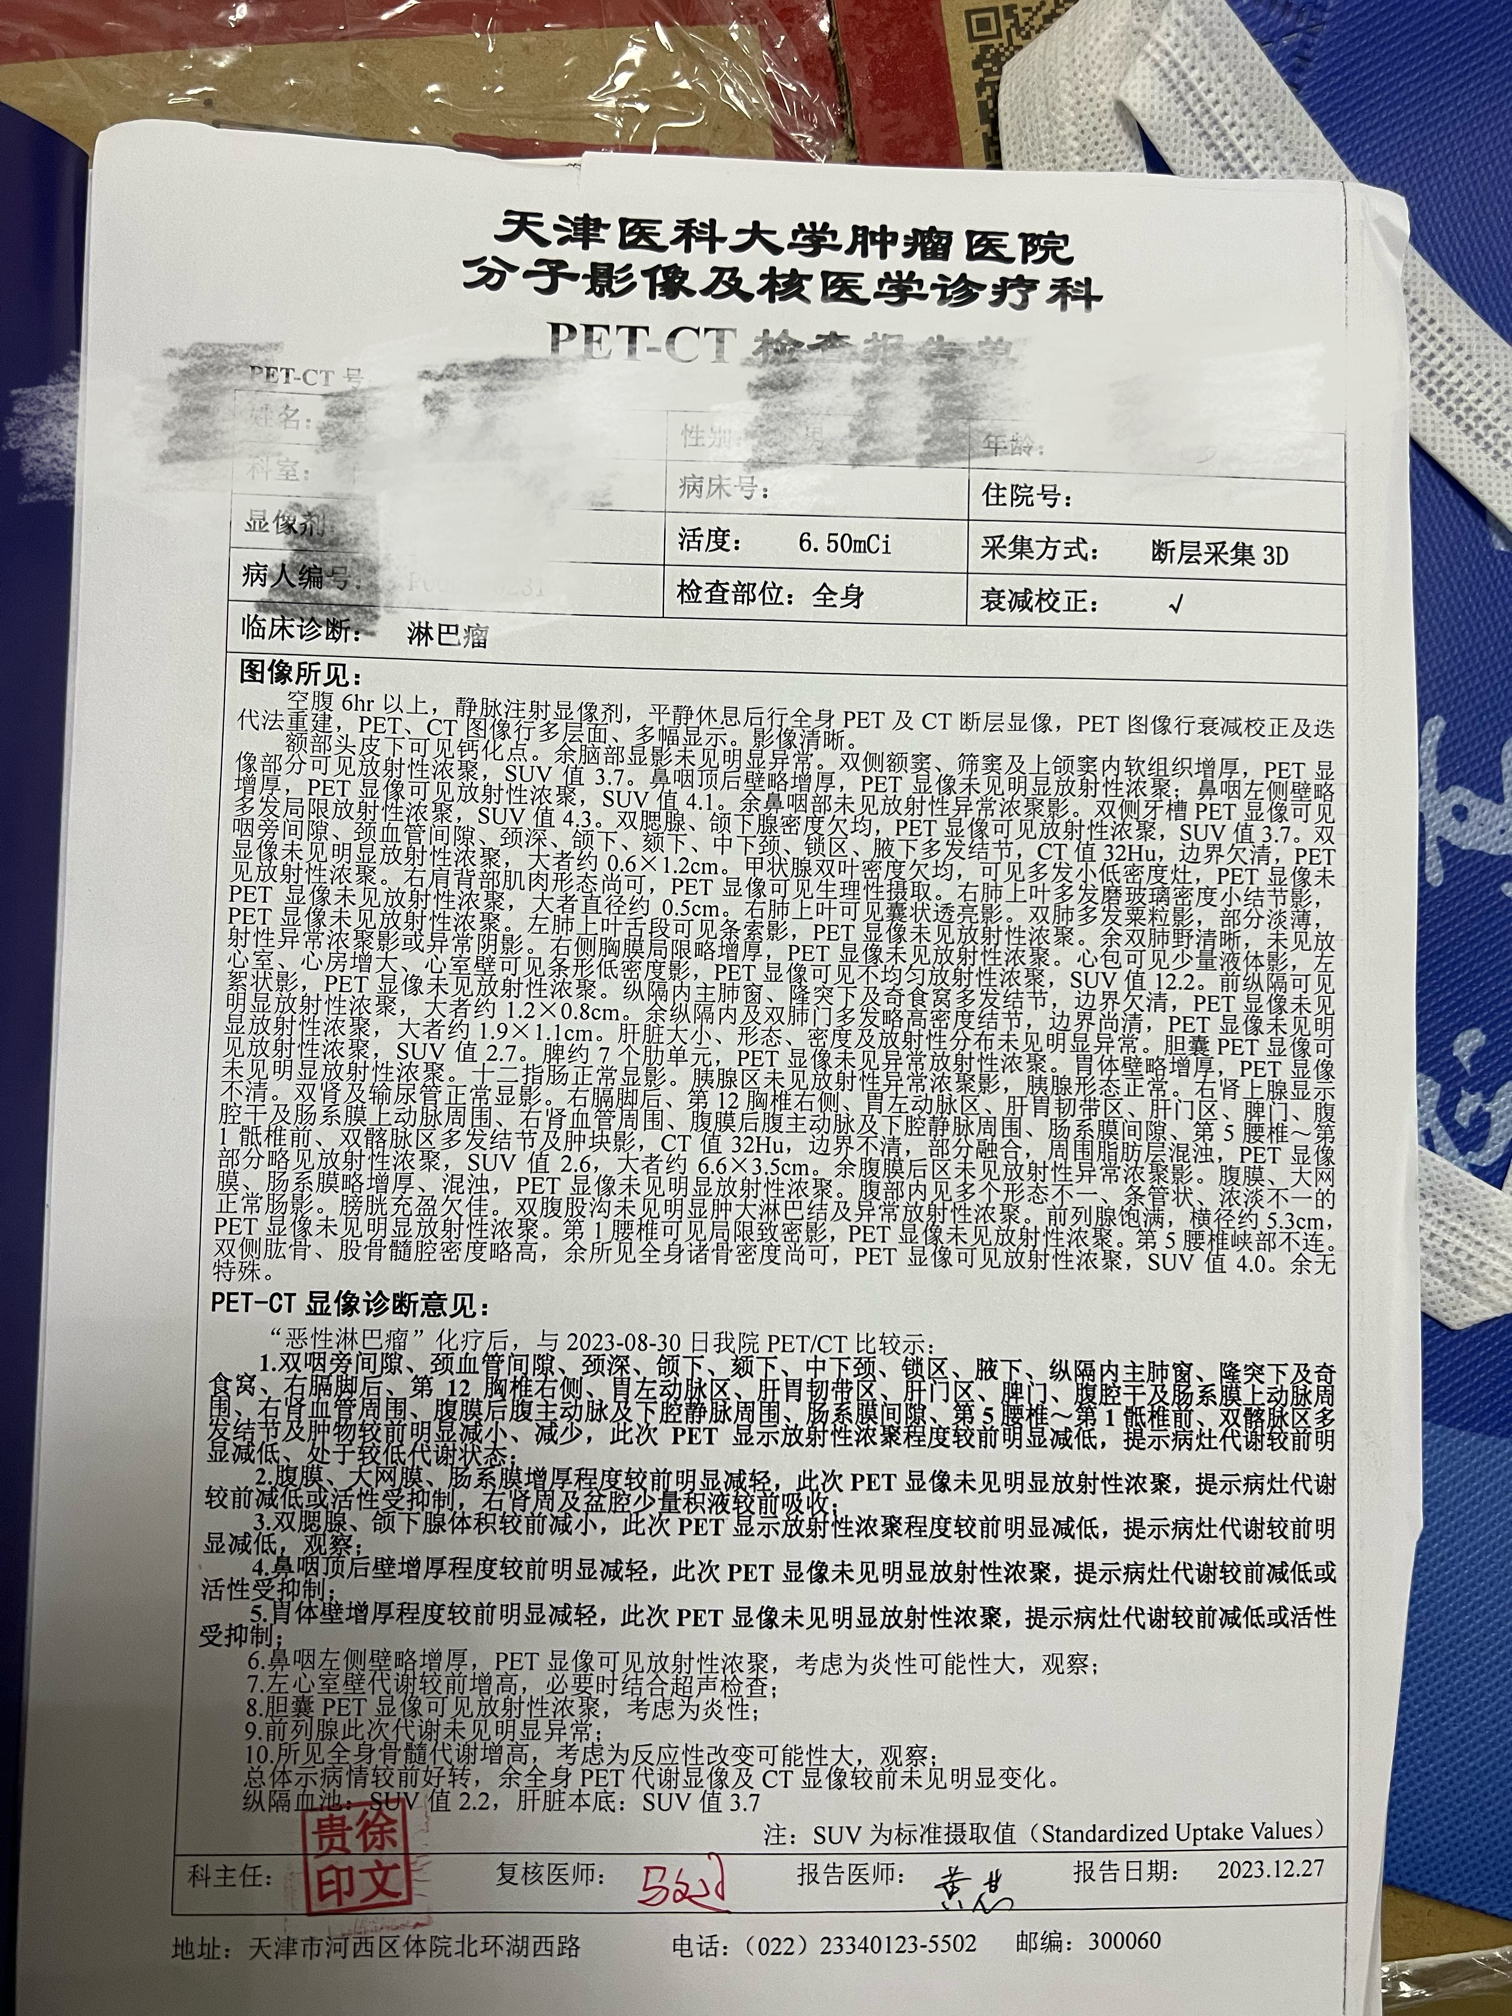 天津医科大学肿瘤医院
分子影像及核医学诊疗科
PET-CT 检查报告单
PET-CT 号
姓名：
性别： 男
年龄：
科室：
病床号：
住院号：
显像剂
活度： 6.50mCi
采集方式： 断层采集 3D
病人编号：
检查部位：全身
衰减校正： √
临床诊断： 淋巴瘤
图像所见：
空腹 6hr 以上，静脉注射显像剂，平静休息后行全身 PET 及 CT 断层显像，PET 图像行衰减校正及迭
代法重建，PET、CT 图像行多层面、多幅显示。影像清晰。
额部头皮下可见钙化点。余脑部显影未见明显异常。双侧额窦、筛窦及上颌窦内软组织增厚，PET 显
像部分可见放射性浓聚，SUV 值 3.7。鼻咽顶后壁略增厚，PET 显像未见明显放射性浓聚；鼻咽左侧壁略
增厚，PET 显像可见放射性浓聚，SUV 值 4.1。余鼻咽部未见放射性异常浓聚影。双侧牙槽 PET 显像可见
多发局限放射性浓聚，SUV 值 4.3。双腮腺、颌下腺密度欠均，PET 显像可见放射性浓聚，SUV 值 3.7。双
咽旁间隙、颈血管间隙、颈深、颌下、颏下、中下颈、锁区、腋下多发结节，CT 值 32Hu，边界欠清，PET
显像未见明显放射性浓聚，大者约 0.6×1.2cm。甲状腺双叶密度欠均，可见多发小低密度灶，PET 显像未
见放射性浓聚。右肩背部肌肉形态尚可，PET 显像可见生理性摄取。右肺上叶多发磨玻璃密度小结节影，
PET 显像未见放射性浓聚，大者直径约 0.5cm。右肺上叶可见囊状透亮影。双肺多发粟粒影，部分淡薄，
PET 显像未见放射性浓聚。左肺上叶舌段可见条索影，PET 显像未见放射性浓聚。余双肺野清晰，未见放
射性异常浓聚影或异常阴影。右侧胸膜局限略增厚，PET 显像未见放射性浓聚。心包可见少量液体影，左
心室、心房增大、心室壁可见条形低密度影，PET 显像可见不均匀放射性浓聚，SUV 值 12.2。前纵隔可见
絮状影，PET 显像未见放射性浓聚。纵隔内主肺窗、隆突下及奇食窝多发结节，边界欠清，PET 显像未见
明显放射性浓聚，大者约 1.2×0.8cm。余纵隔内及双肺门多发略高密度结节，边界尚清，PET 显像未见明
显放射性浓聚，大者约 1.9×1.1cm。肝脏大小、形态、密度及放射性分布未见明显异常。胆囊 PET 显像可
见放射性浓聚，SUV 值 2.7。脾约 7 个肋单元，PET 显像未见异常放射性浓聚。胃体壁略增厚，PET 显像
未见明显放射性浓聚。十二指肠正常显影。胰腺区未见放射性异常浓聚影，胰腺形态正常。右肾上腺显示
不清。双肾及输尿管正常显影。右膈脚后、第 12 胸椎右侧、胃左动脉区、肝胃韧带区、肝门区、脾门、腹
腔干及肠系膜上动脉周围、右肾血管周围、腹膜后腹主动脉及下腔静脉周围、肠系膜间隙、第 5 腰椎～第
1 骶椎前、双髂脉区多发结节及肿块影，CT 值 32Hu，边界不清，部分融合，周围脂肪层混浊，PET 显像
部分略见放射性浓聚，SUV 值 2.6，大者约 6.6×3.5cm。余腹膜后区未见放射性异常浓聚影。腹膜、大网
膜、肠系膜略增厚、混浊，PET 显像未见明显放射性浓聚。腹部内见多个形态不一、条管状、浓淡不一的
正常肠影。膀胱充盈欠佳。双腹股沟未见明显肿大淋巴结及异常放射性浓聚。前列腺饱满，横径约 5.3cm，
PET 显像未见明显放射性浓聚。第 1 腰椎可见局限致密影，PET 显像未见放射性浓聚。第 5 腰椎峡部不连。
双侧肱骨、股骨髓腔密度略高，余所见全身诸骨密度尚可，PET 显像可见放射性浓聚，SUV 值 4.0。余无
特殊。
PET-CT 显像诊断意见：
“恶性淋巴瘤”化疗后，与 2023-08-30 日我院 PET/CT 比较示：
1.双咽旁间隙、颈血管间隙、颈深、颌下、颏下、中下颈、锁区、腋下、纵隔内主肺窗、隆突下及奇
食窝、右膈脚后、第 12 胸椎右侧、胃左动脉区、肝胃韧带区、肝门区、脾门、腹腔干及肠系膜上动脉周
围、右肾血管周围、腹膜后腹主动脉及下腔静脉周围、肠系膜间隙、第 5 腰椎～第 1 骶椎前、双髂脉区多
发结节及肿物较前明显减小、减少，此次 PET 显示放射性浓聚程度较前明显减低，提示病灶代谢较前明
显减低、处于较低代谢状态；
2.腹膜、大网膜、肠系膜增厚程度较前明显减轻，此次 PET 显像未见明显放射性浓聚，提示病灶代谢
较前减低或活性受抑制，右肾周及盆腔少量积液较前吸收；
3.双腮腺、颌下腺体积较前减小，此次 PET 显示放射性浓聚程度较前明显减低，提示病灶代谢较前明
显减低，观察；
4.鼻咽顶后壁增厚程度较前明显减轻，此次 PET 显像未见明显放射性浓聚，提示病灶代谢较前减低或
活性受抑制；
5.胃体壁增厚程度较前明显减轻，此次 PET 显像未见明显放射性浓聚，提示病灶代谢较前减低或活性
受抑制；
6.鼻咽左侧壁略增厚，PET 显像可见放射性浓聚，考虑为炎性可能性大，观察；
7.左心室壁代谢较前增高，必要时结合超声检查；
8.胆囊 PET 显像可见放射性浓聚，考虑为炎性；
9.前列腺此次代谢未见明显异常；
10.所见全身骨髓代谢增高，考虑为反应性改变可能性大，观察；
总体示病情较前好转，余全身 PET 代谢显像及 CT 显像较前未见明显变化。
纵隔血池：SUV 值 2.2，肝脏本底：SUV 值 3.7
注：SUV 为标准摄取值（Standardized Uptake Values）
科主任： 徐文贵印
复核医师：
报告医师：
报告日期： 2023.12.27
地址：天津市河西区体院北环湖西路 电话：（022）23340123-5502 邮编：300060